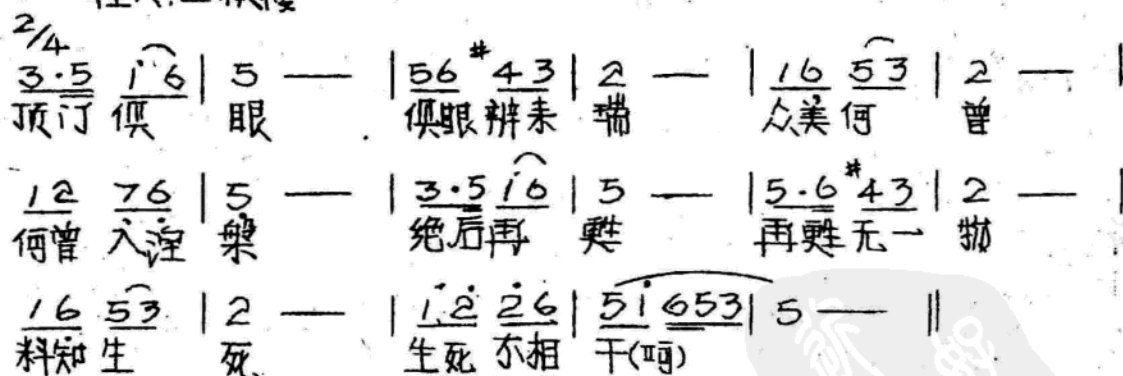 2/4
3·5 i 6 | 5 — | 56 #43 | 2 — | 16 53 | 2 — |
顶订 俱 眼 俱眼 辨未 瑞 众美 何 曾
12 76 | 5 — | 3·5 i6 | 5 — | 5·6 #43 | 2 — |
何曾 入涅 槃 绝后再 甦 再甦 无一 物
16 53 | 2 — | i 2 26 | 5i 653 | 5 — ‖
料知 生 死 生死 不相 干(呵)